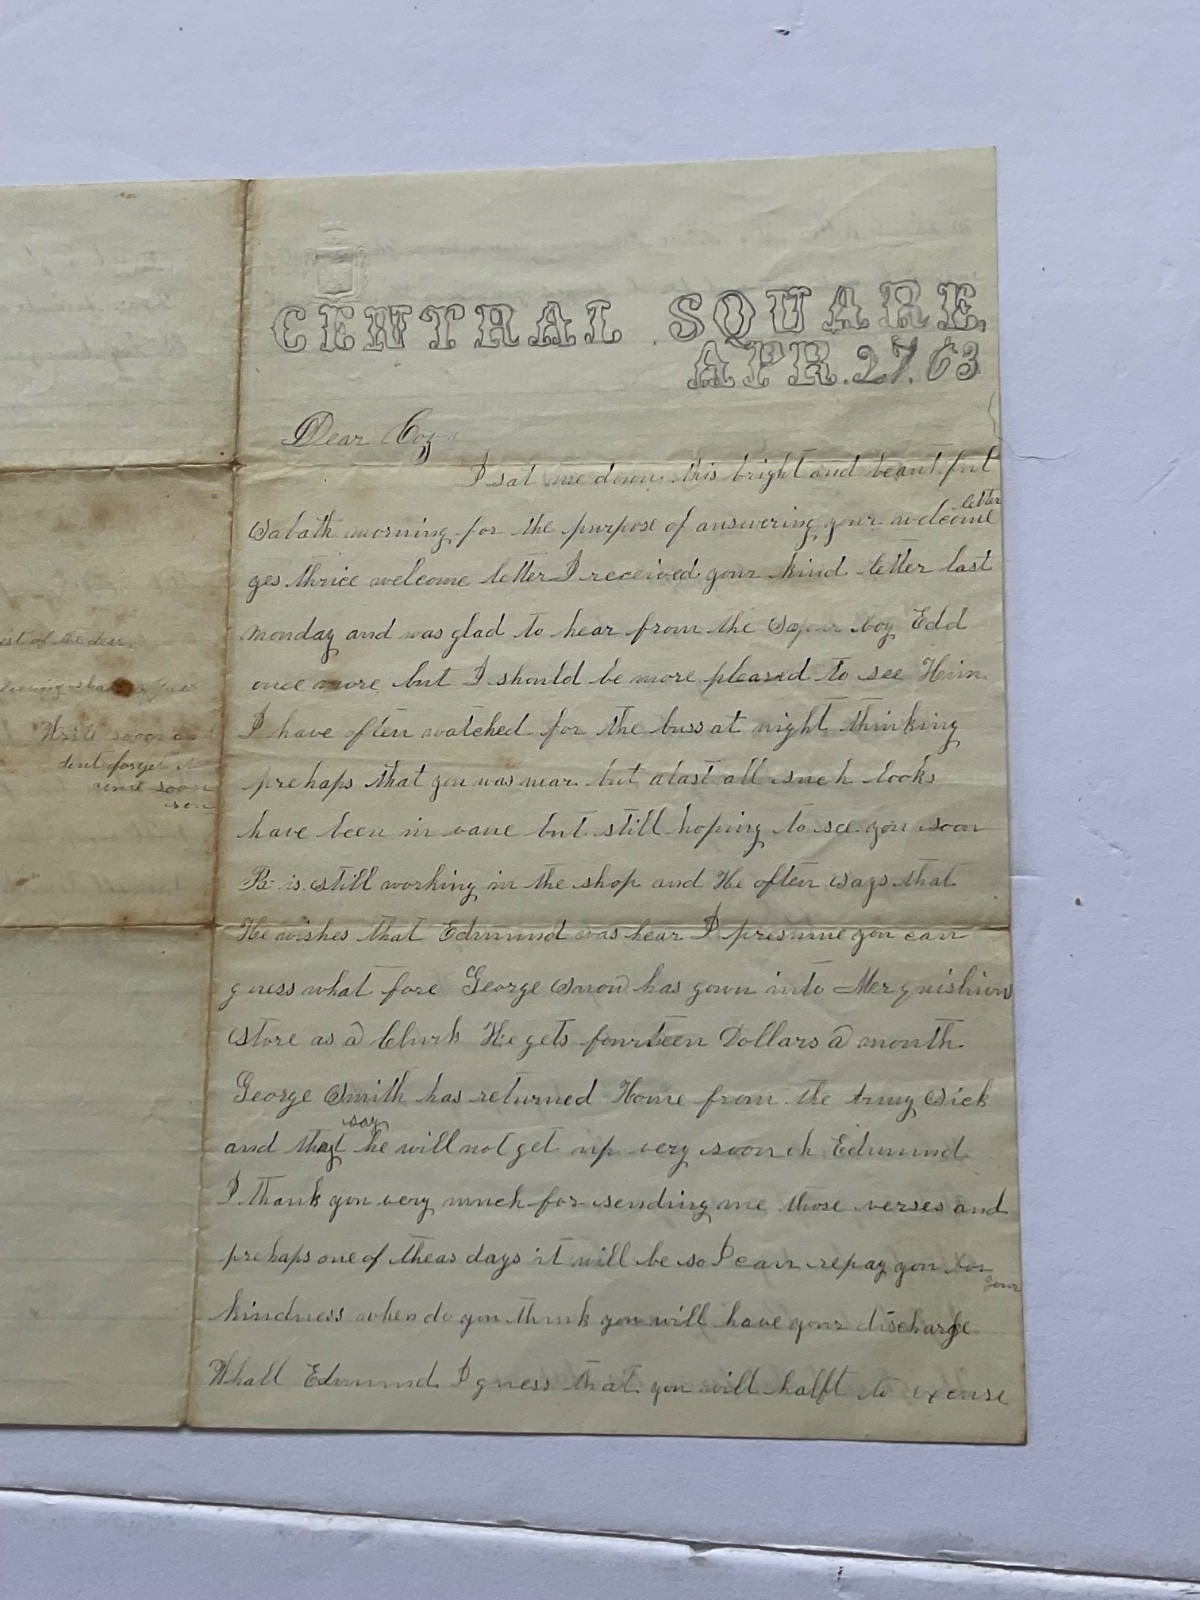 CENTRAL SQUARE.
APR. 27. 63
Dear Coz
I sat me down this bright and beautiful
letter
Sabath morning for the purpose of answering your welcome
yes thrice welcome letter I received your kind letter last
monday and was glad to hear from the boy Edd
once more but I should be more pleased to see Heim
I have often watched for the buss at night thinking
prehaps that you was near but alast all such looks
have been in vane but still hoping to see you soon
Pa is still working in the shop and He often says that
He wishes that Edmund was hear I presume you can
guess what fore George Snow has gown into
store as a Clurk He gets fourteen Dollars a month
George Smith has returned Home from the Army Sick
say
and they he will not get up very soon oh Edmund
I thank you very much for sending me those verses and
prehaps one of theas days it will be so I can repay you for
your
kindness when do you think you will have your discharge
Whall Edmund I guess that you will halft to excuse
est of the dear
Write soon and
dont forget
come soon